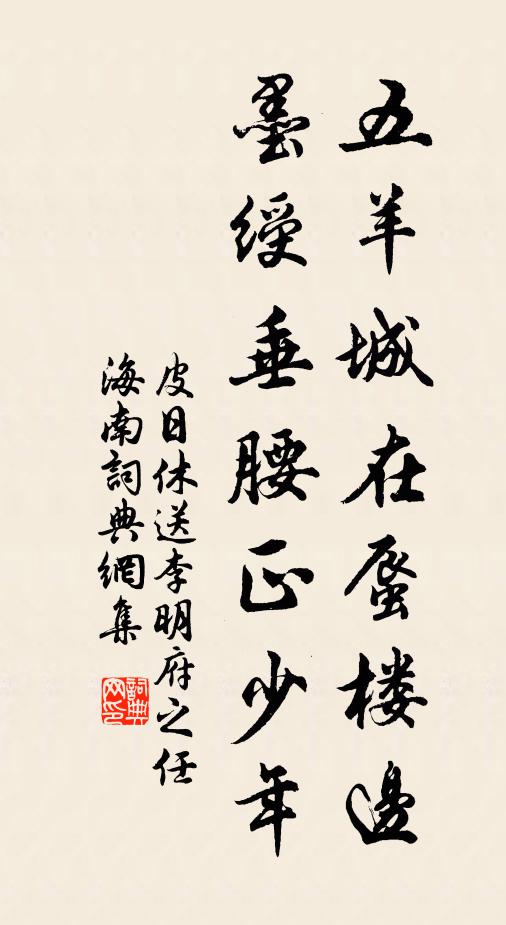 五羊城在蜃楼邊
墨綬垂腰正少年
皮日休送李明府之任
海南詞典網集
詞典網印